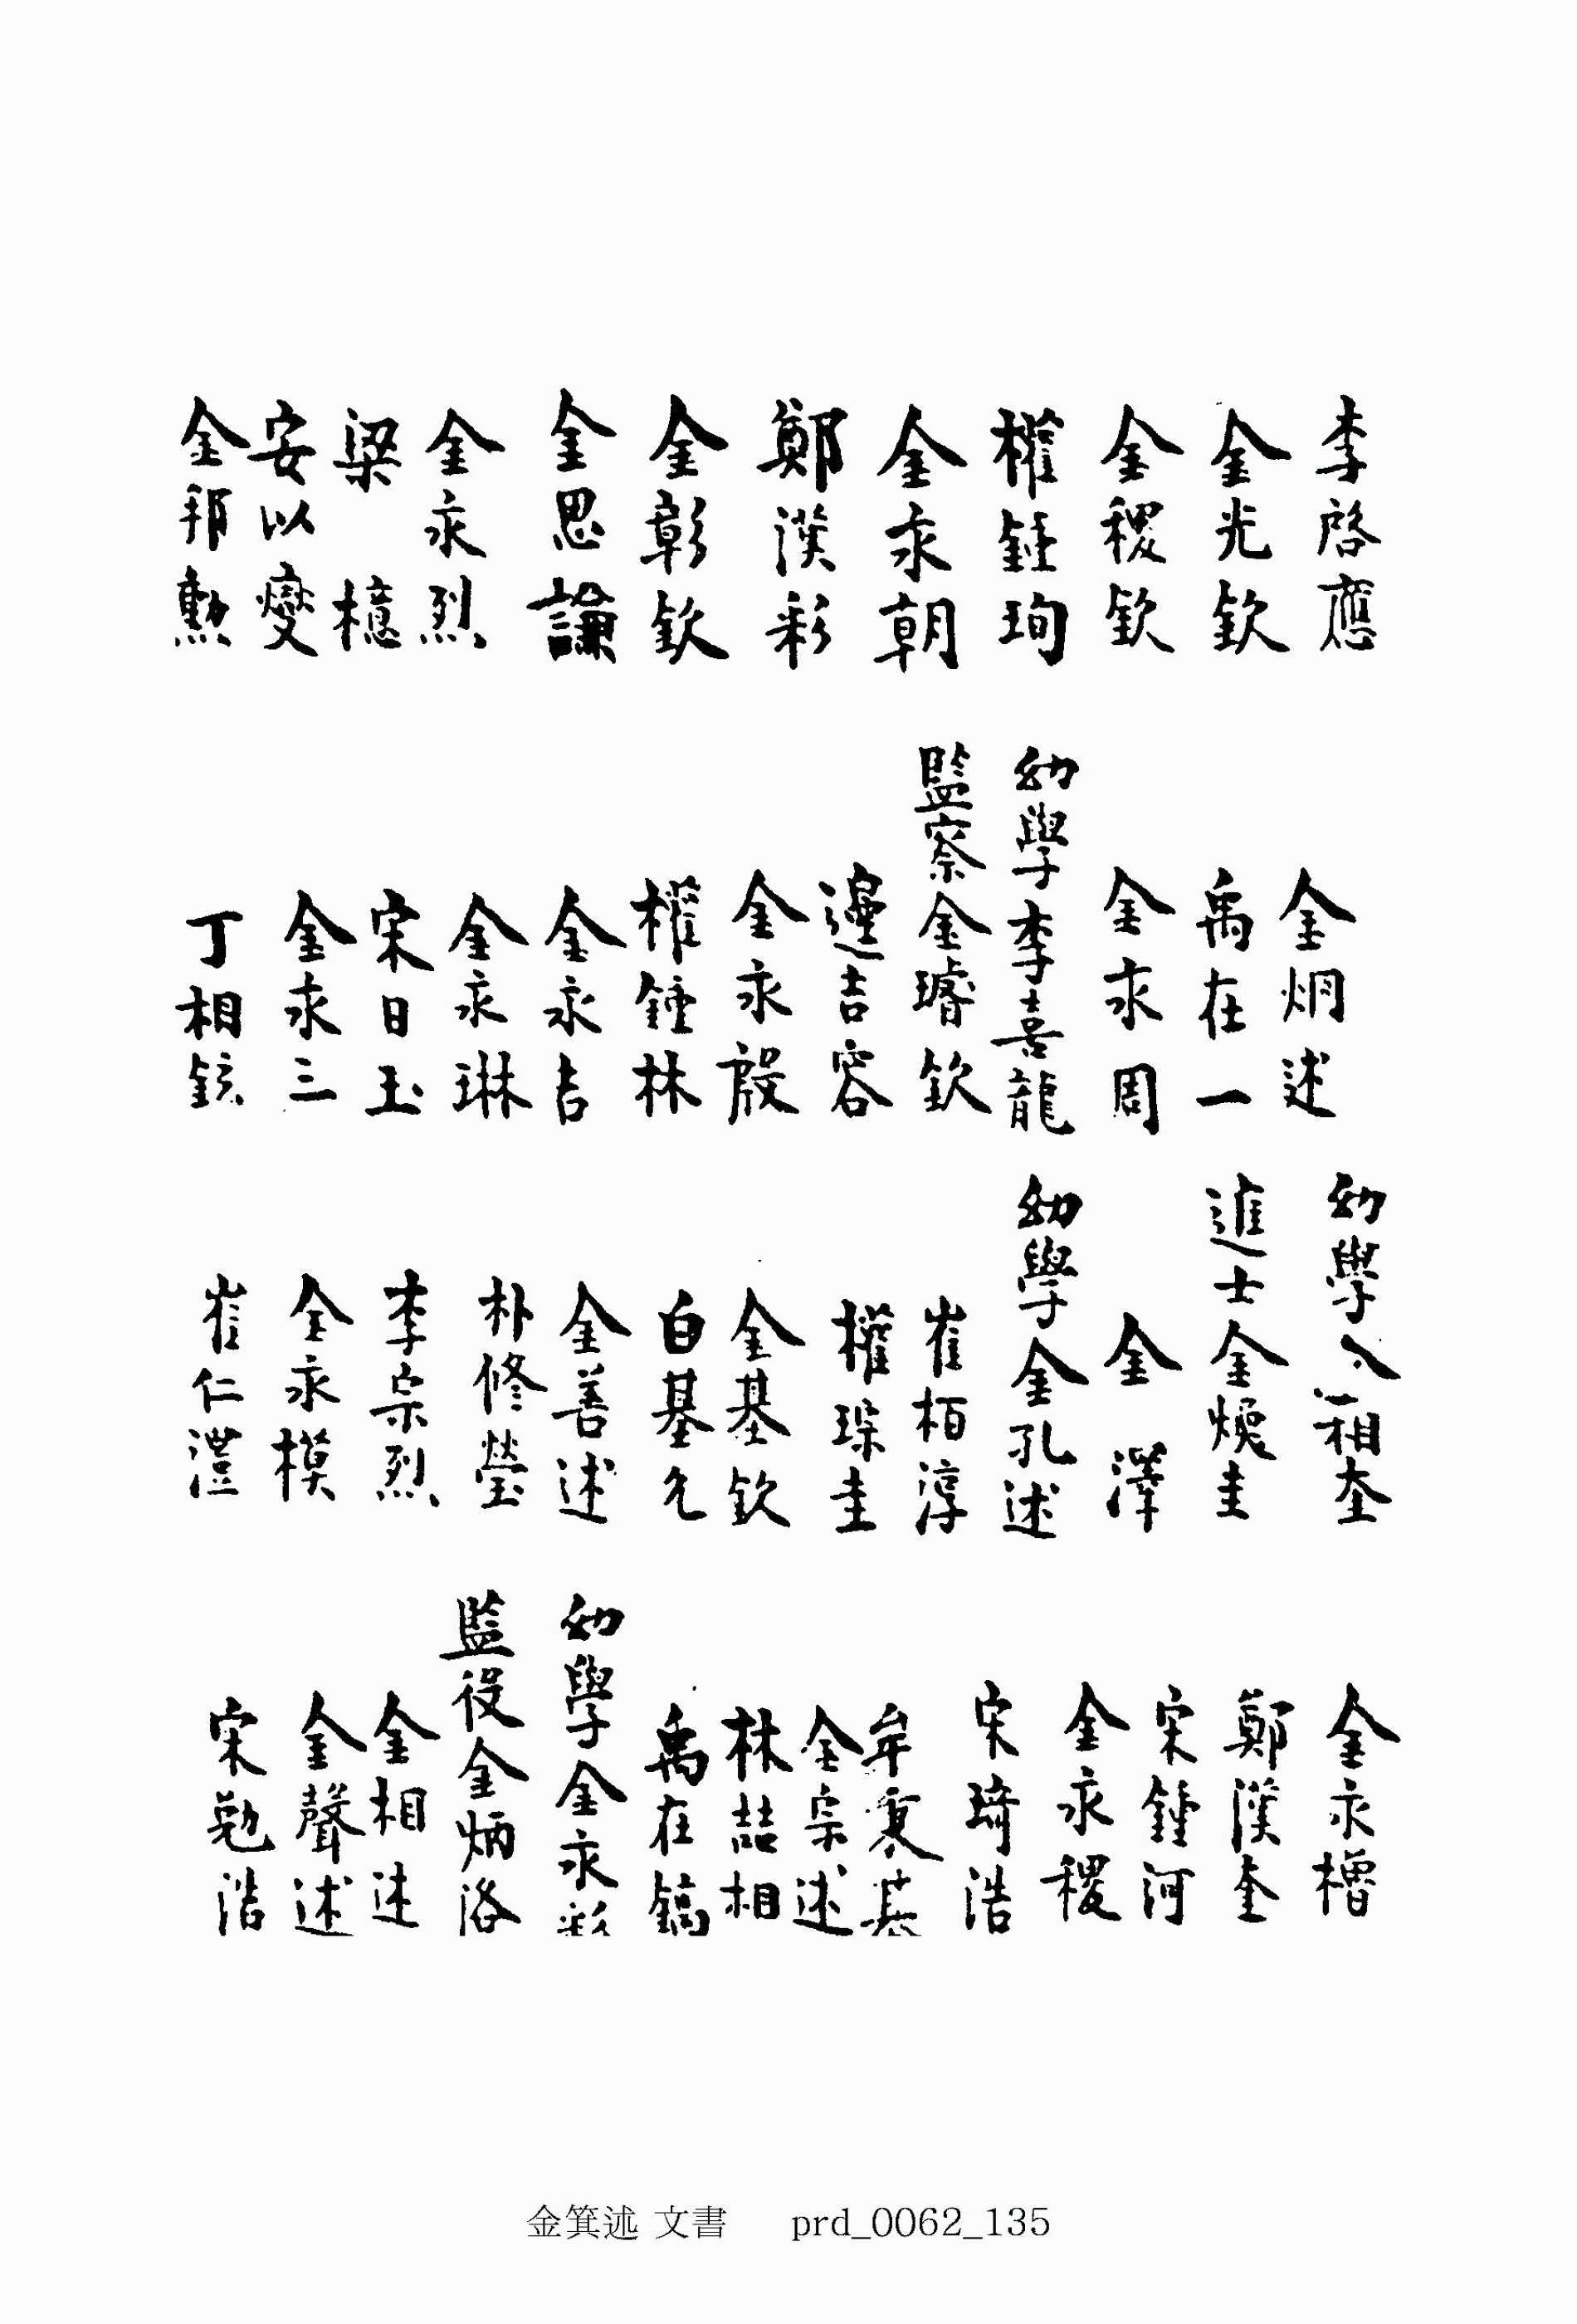 李啓應
金光欽
金稷欽
權鍾珣
金永朝
鄭漢彩
金彰欽
金思謙
金永烈
梁檍
安以燮
金邦勲
金炯述
禹在一
金永周
幼學李喜龍
監察金璿欽
邊吉容
金永殷
權鍾林
金永吉
金永琳
宋日玉
金永三
丁相鉉
幼學 相奎
進士金煥圭
金澤
幼學金孔述
崔栢淳
權琛圭
金基欽
白基允
金善述
朴修瑩
李宗烈
金永模
崔仁澧
金永櫓
鄭漢奎
宋鍾河
金永稷
宋琦浩
牟 基
金宗述
林喆相
禹在鎬
幼學金永彩
監役金炳洛
金相述
金聲述
宋勉浩
金箕述 文書 prd_0062_135